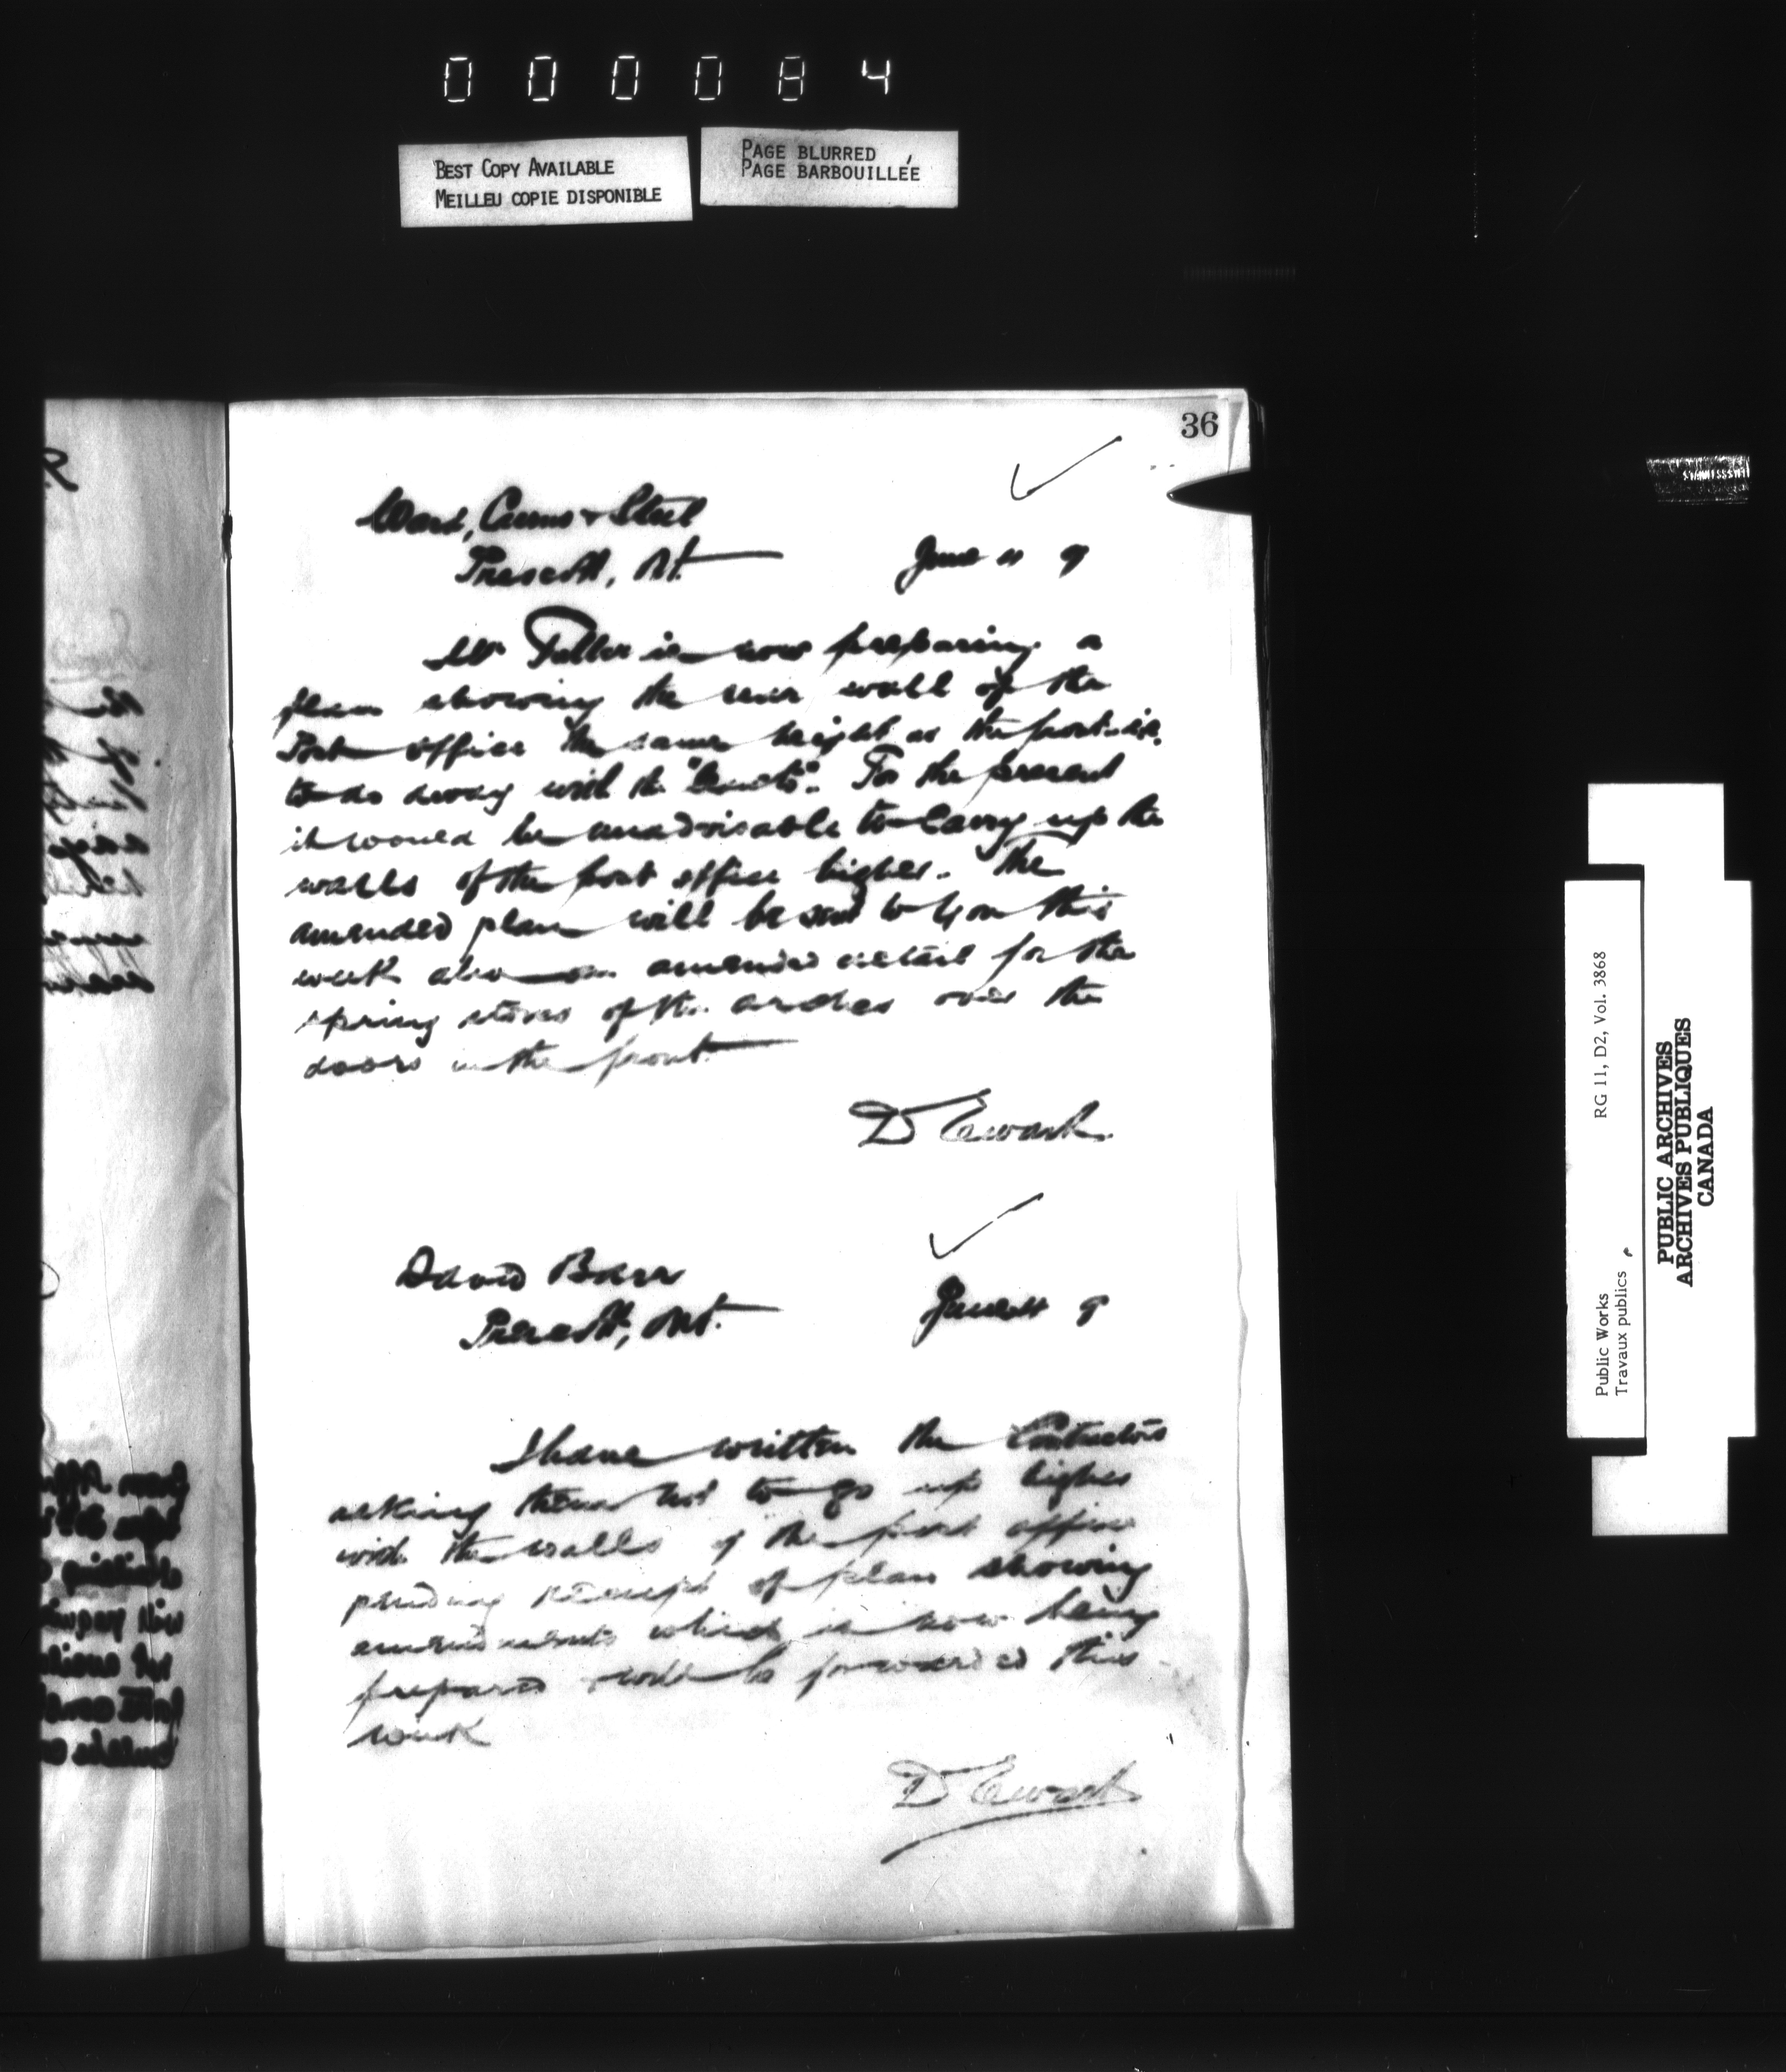 000084
BEST COPY AVAILABLE
MEILLEU COPIE DISPONIBLE
PAGE BLURRED
PAGE BARBOUILLÉE
36
Ward, &
Prescott, Ont.
June 9
Mr Fuller is now preparing a
plan showing the rear wall of the
Post office the same height as the front i.e.
to do away with the For the present
it would be unadvisable to carry up the
walls of the post office higher. The
amended plan will be sent to you this
week also an amended detail for the
spring stones of the arches over the
doors in the front.
D Ewart
David Barr
Prescott, Ont.
June 9
I have written the Contractors
asking them not to go up higher
with the walls of the post office
pending receipt of plan showing
amendments which is now being
prepared & will be forwarded this
week
D Ewart
Public Works
Travaux publics
RG 11, D2, Vol. 3868
PUBLIC ARCHIVES
ARCHIVES PUBLIQUES
CANADA